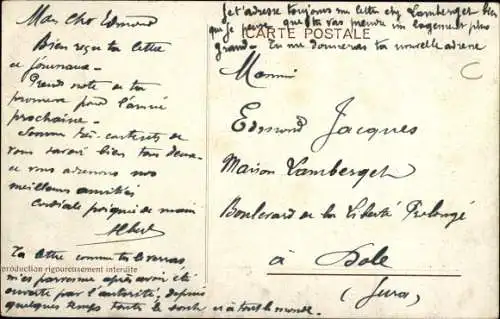 Mon cher Edmond
Bien reçu ta lettre
et journaux -
Prends note de ta
promesse pour l'année
prochaine -
Sommes très contents de
vous savoir bien tous deux
et vous adressons nos
meilleures amitiés
Cordiale poignée de main
Albert
Ta lettre comme tu le verras
m'est parvenue après avoir été
ouverte par l'autorité, depuis
quelques temps toutes le sont et à tout le monde.
production rigoureusement interdite
Je t'adresse toujours ma lettre chez Lamberget bien
que je pense que tu vas prendre un logement plus
grand - Tu me donneras ta nouvelle adresse
CARTE POSTALE
Monsieur
Edmond Jacques
Maison Lamberget
Boulevard de la Liberté Prolongé
à Dole
(Jura)